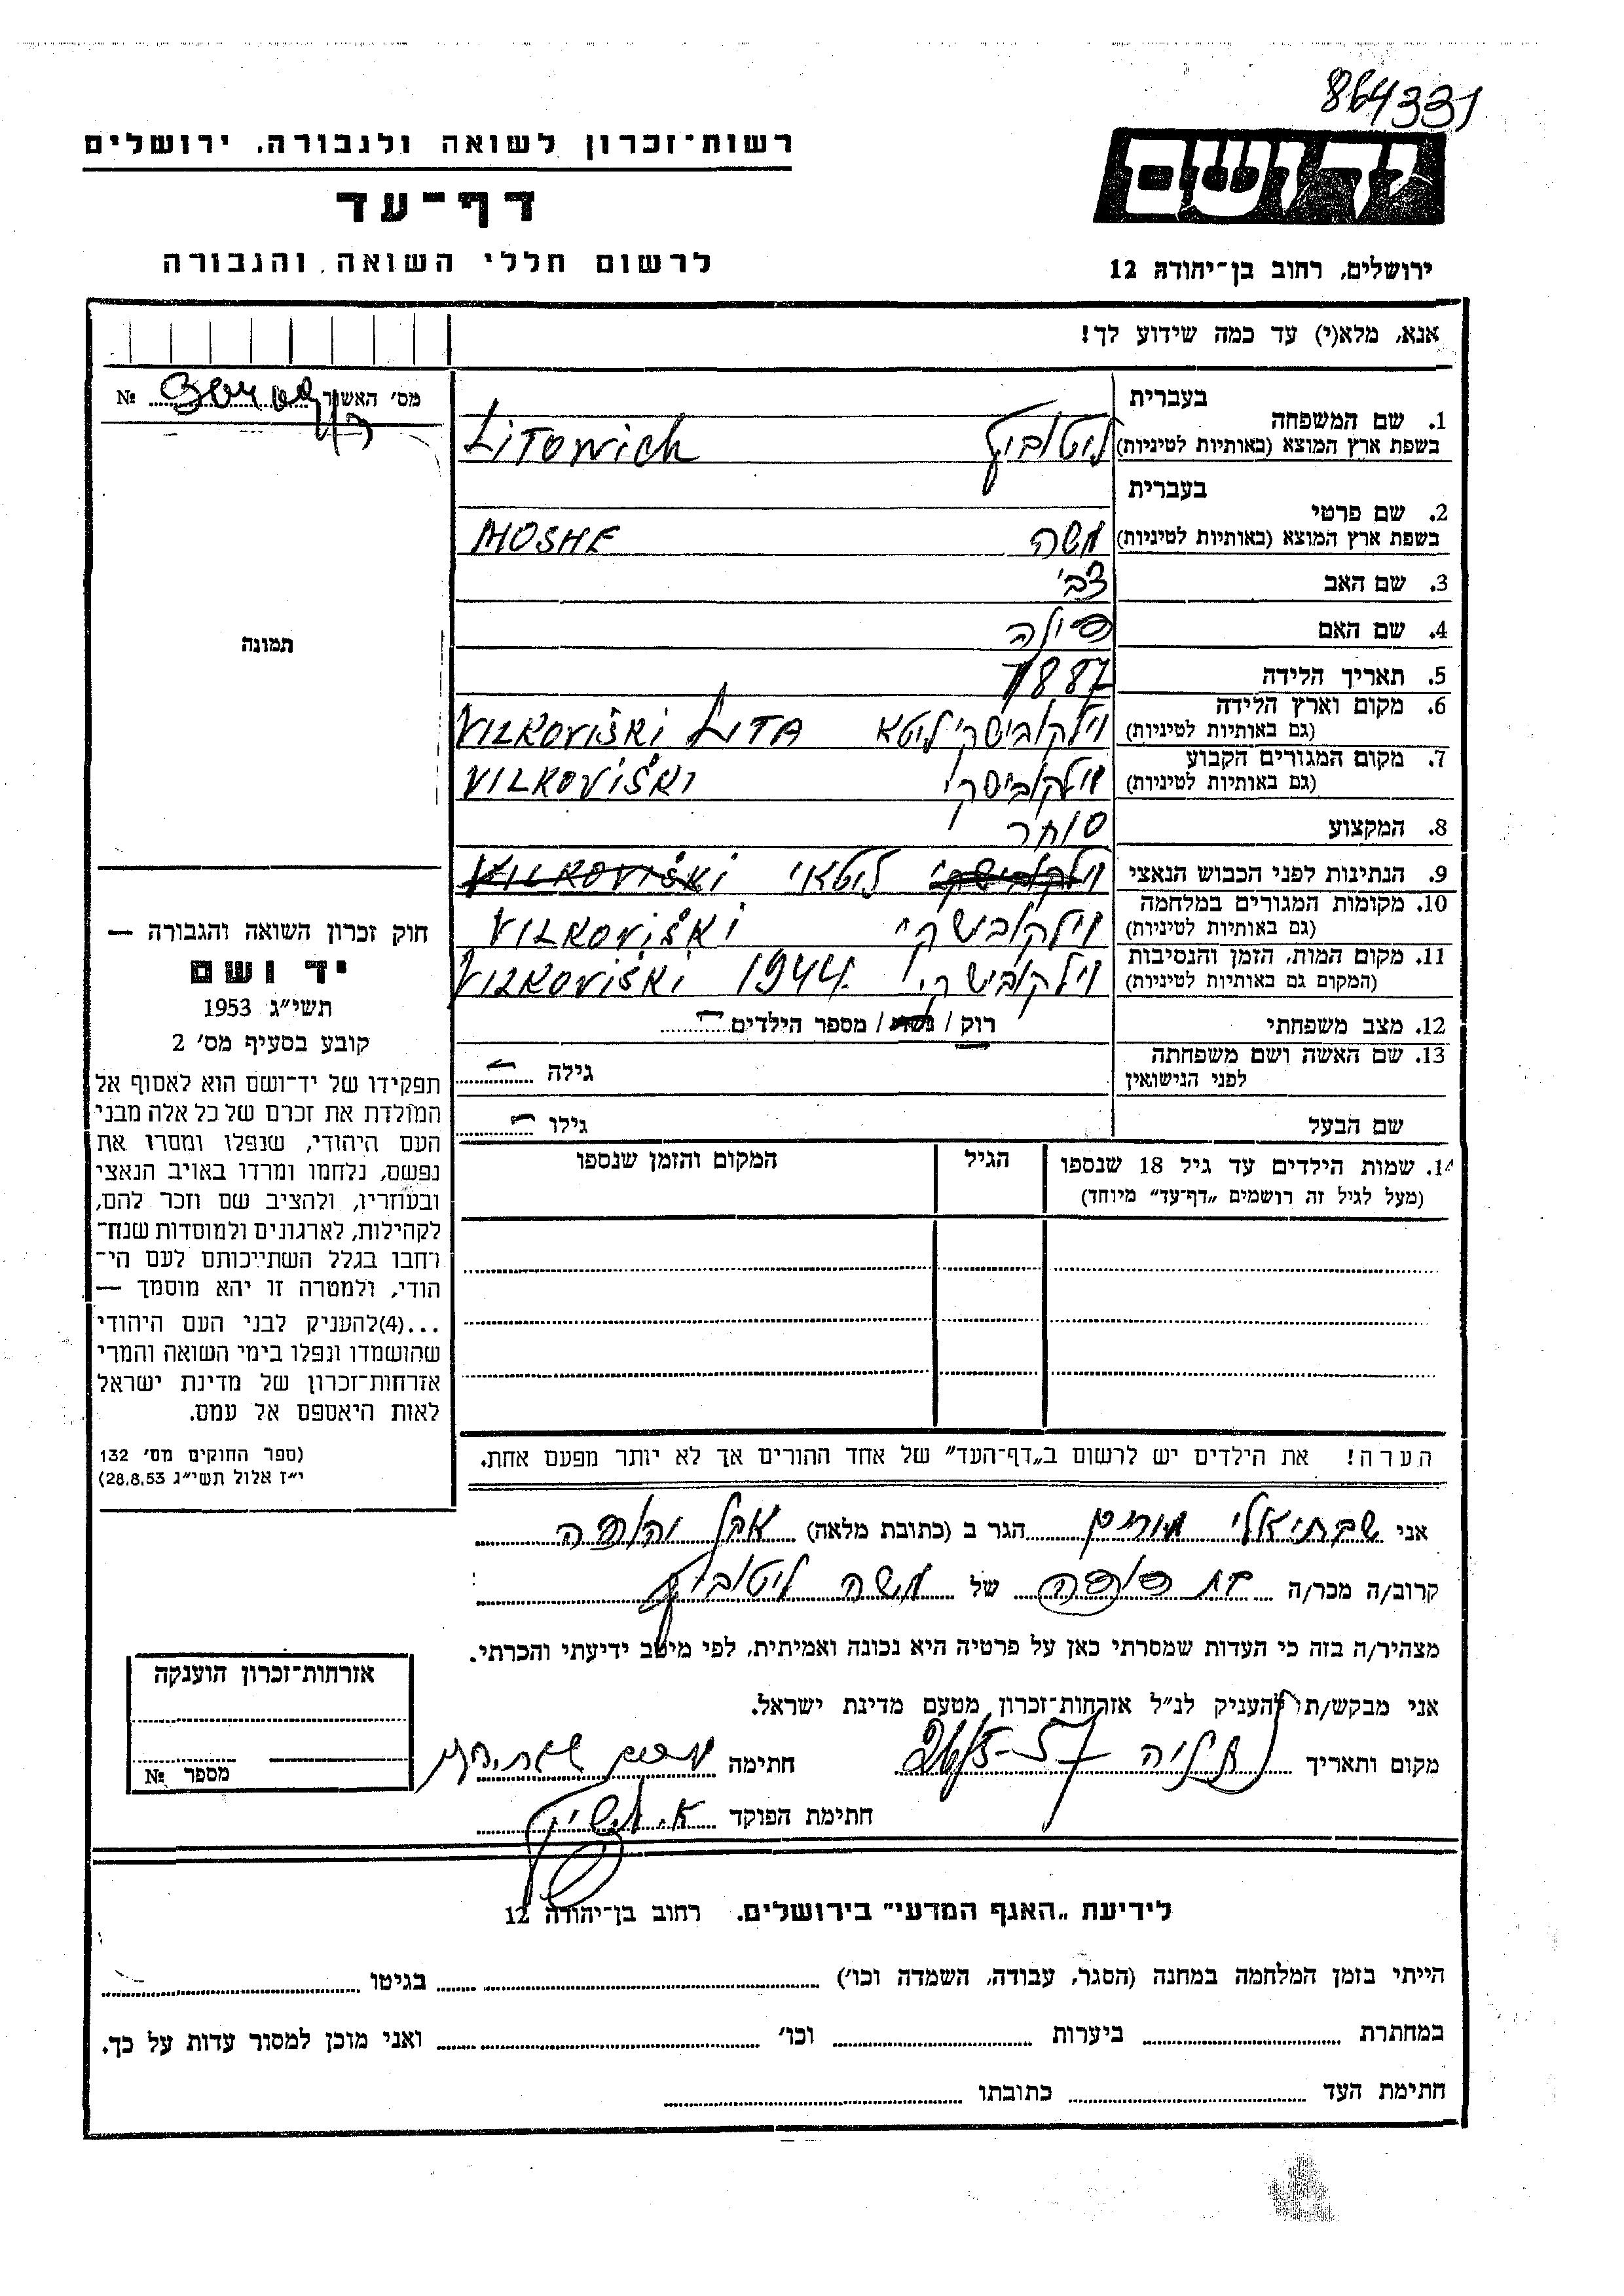 864331
רשות־זכרון לשואה ולגבורה, ירושלים
דף־עד
לרשום חללי השואה והגבורה
יד ושם
ירושלים, רחוב בן־יהודה 12
אנא, מלא(י) עד כמה שידוע לך!
מס׳ האשור № 
1. שם המשפחה בעברית
בשפת ארץ המוצא (באותיות לטיניות) ליטוביץ Litowich
2. שם פרטי בעברית
בשפת ארץ המוצא (באותיות לטיניות) משה MOSHE
3. שם האב צבי
4. שם האם
5. תאריך הלידה 1887
6. מקום וארץ הלידה
(גם באותיות לטיניות) וילקובישקי ליטא VILKOVIŠKI LITA
7. מקום המגורים הקבוע
(גם באותיות לטיניות) וילקוביסקי VILKOVIŠKI
8. המקצוע סוחר
9. הנתינות לפני הכבוש הנאצי וילקובישקי ליטאי VILKOVIŠKI
10. מקומות המגורים במלחמה
(גם באותיות לטיניות) וילקובישקי VILKOVIŠKI
11. מקום המות, הזמן והנסיבות
(המקום גם באותיות לטיניות) וילקובישקי 1944 VILKOVIŠKI
12. מצב משפחתי רוק / נשוי / מספר הילדים –
13. שם האשה ושם משפחתה
לפני הנישואין גילה –
שם הבעל גילו –
14. שמות הילדים עד גיל 18 שנספו הגיל המקום והזמן שנספו
(מעל לגיל זה רושמים „דף־עד” מיוחד)
הערה! את הילדים יש לרשום ב„דף־העד” של אחד ההורים אך לא יותר מפעם אחת.
תמונה
חוק זכרון השואה והגבורה —
יד ושם
תשי״ג 1953
קובע בסעיף מס׳ 2
תפקידו של יד־ושם הוא לאסוף אל
המולדת את זכרם של כל אלה מבני
העם היהודי, שנפלו ומסרו את
נפשם, נלחמו ומרדו באויב הנאצי
ובעוזריו, ולהציב שם וזכר להם,
לקהילות, לארגונים ולמוסדות שנח־
רחבו בגלל השתייכותם לעם הי־
הודי, ולמטרה זו יהא מוסמך —
...(4)להעניק לבני העם היהודי
שהושמדו ונפלו בימי השואה והמרי
אזרחות־זכרון של מדינת ישראל
לאות היאספם אל עמם.
(ספר החוקים מס׳ 132
י״ז אלול תשי״ג 28.8.53)
אני שבתיאלי מרים הגר ב (כתובת מלאה) אבן יהודה
קרוב/ה מכר/ה בת דודה של משה ליטוביץ
מצהיר/ה בזה כי העדות שמסרתי כאן על פרטיה היא נכונה ואמיתית, לפי מיטב ידיעתי והכרתי.
אני מבקש/ת להעניק לנ״ל אזרחות־זכרון מטעם מדינת ישראל.
מקום ותאריך נתניה 26/5-57 חתימה
חתימת הפוקד
אזרחות־זכרון הוענקה
מספר №
לידיעת „האגף המדעי” בירושלים. רחוב בן־יהודה 12
הייתי בזמן המלחמה במחנה (הסגר, עבודה, השמדה וכו׳) בגיטו
במחתרת ביערות וכו׳ ואני מוכן למסור עדות על כך.
חתימת העד כתובתו